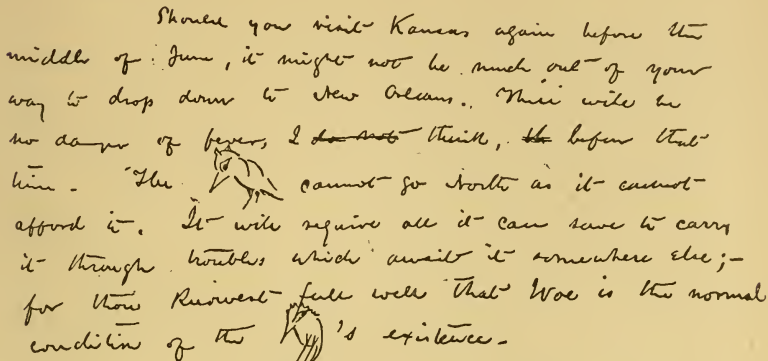 Should you visit Kansas again before the
middle of June, it might not be much out of your
way to drop down to New Orleans. There will be
no danger of fever, I do not think, th before that
time. The cannot go North as it cannot
afford it. It will require all it can save to carry
it through troubles which await it somewhere else;—
for thou knowest full well that Woe is the normal
condition of the 's existence.